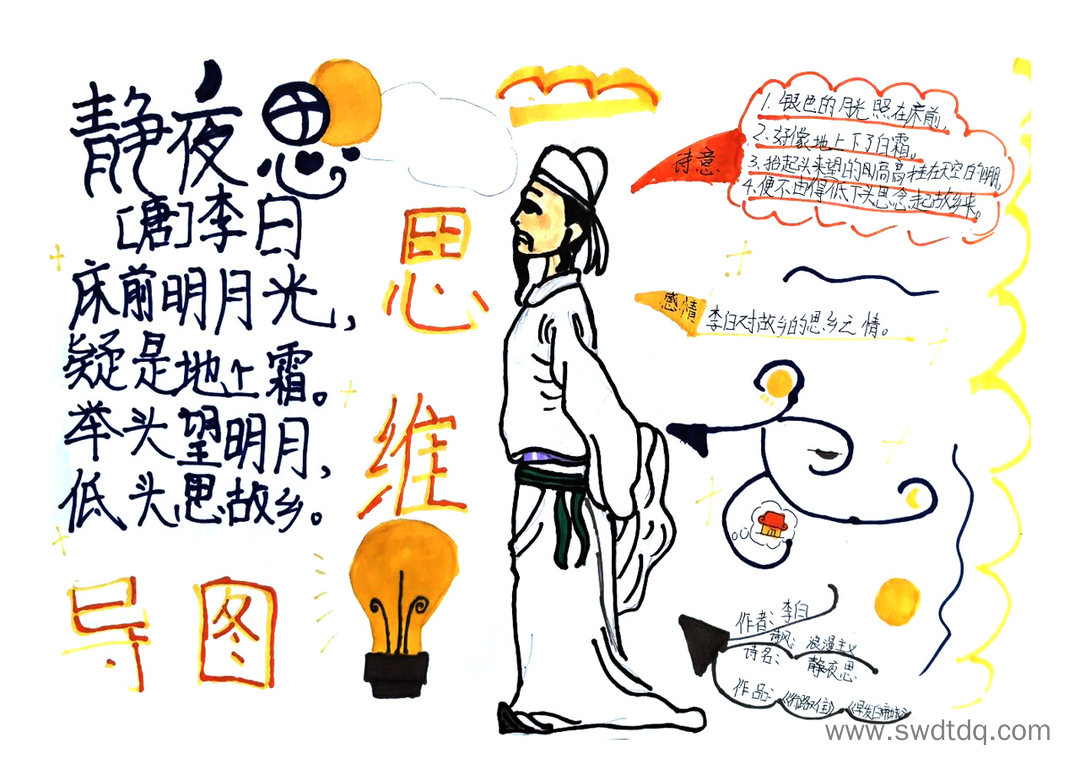 静夜思
[唐]李白
床前明月光，
疑是地上霜。
举头望明月，
低头思故乡。
思
维
导图
诗意
1、银色的月光照在床前，
2、好像地上下了白霜。
3、抬起头来望的月高高挂在天空的明
4、便不由得低下头思念起故乡来。
感情
李白对故乡的思乡之情。
作者：李白
诗风：浪漫主义
诗名：静夜思
作品：《行路难》《早发白帝城》
www.swdtdq.com